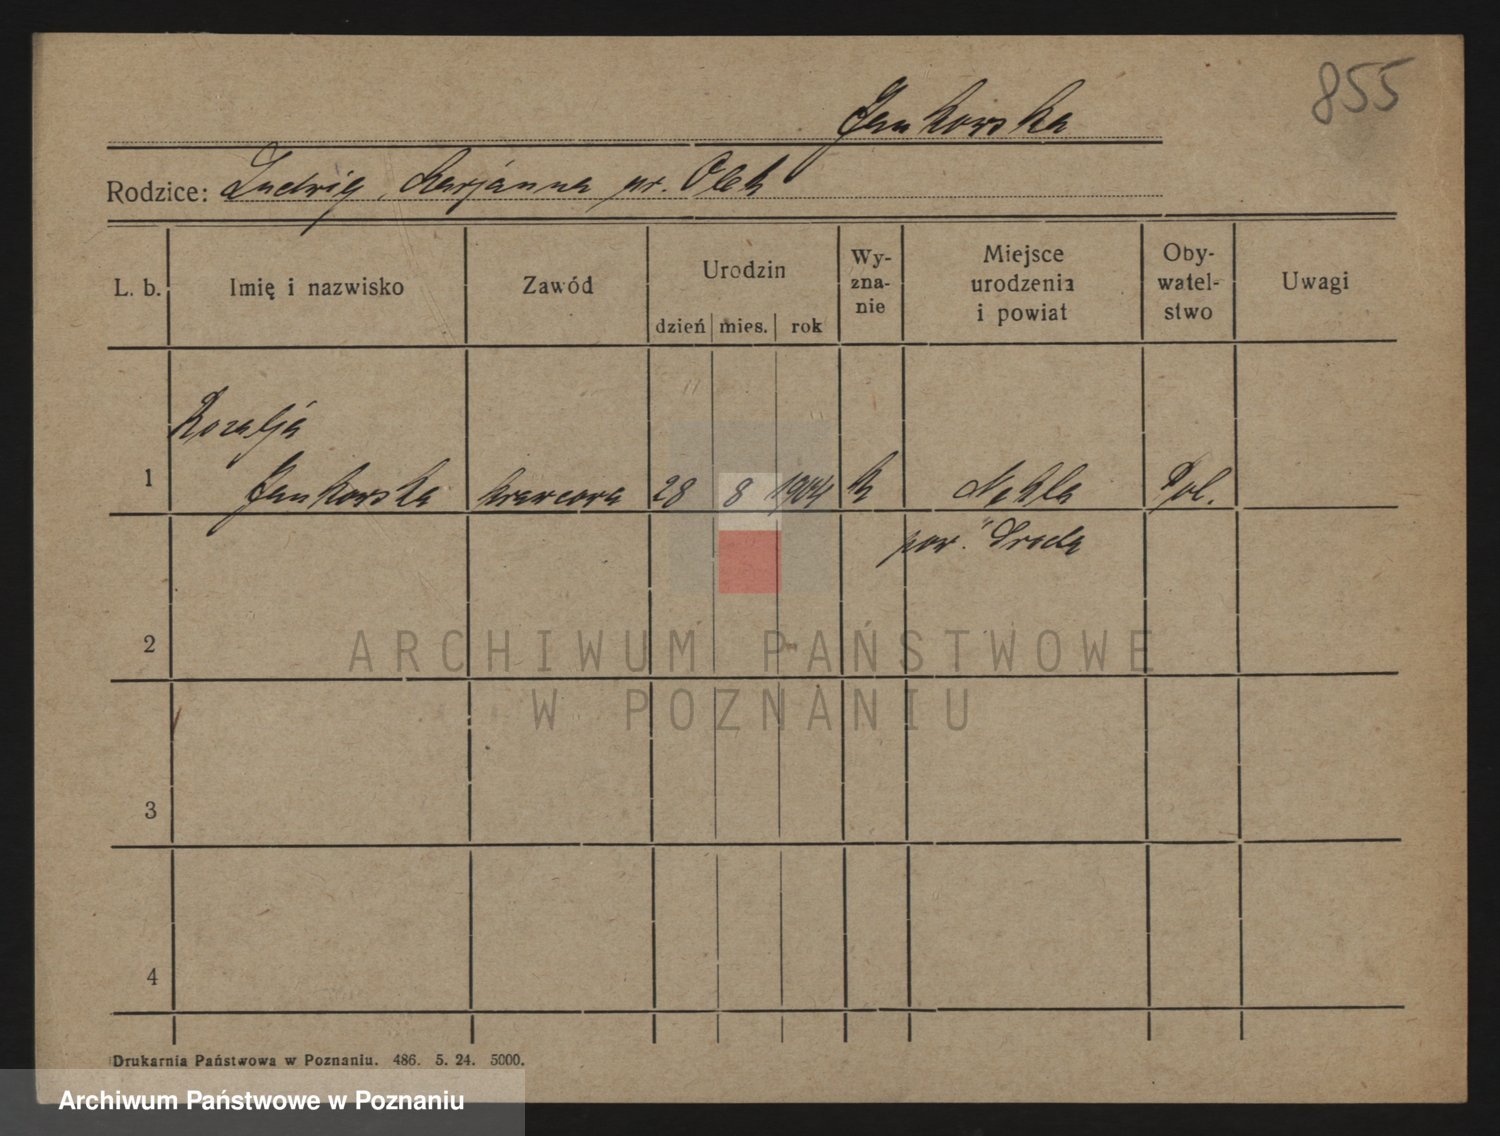 855
Jankowska
Rodzice: Ludwig, Marjanna ur. Olek
L. b. Imię i nazwisko Zawód Urodzin Wy-zna-nie Miejsce urodzenia i powiat Oby-watel-stwo Uwagi
dzień mies. rok
Rozalja
1 Jankowska krawcowa 28 8 1904 k Nekla Pol.
pow. Środa
2
ARCHIWUM PAŃSTWOWE
W POZNANIU
3
4
Drukarnia Państwowa w Poznaniu. 486. 5. 24. 5000.
Archiwum Państwowe w Poznaniu